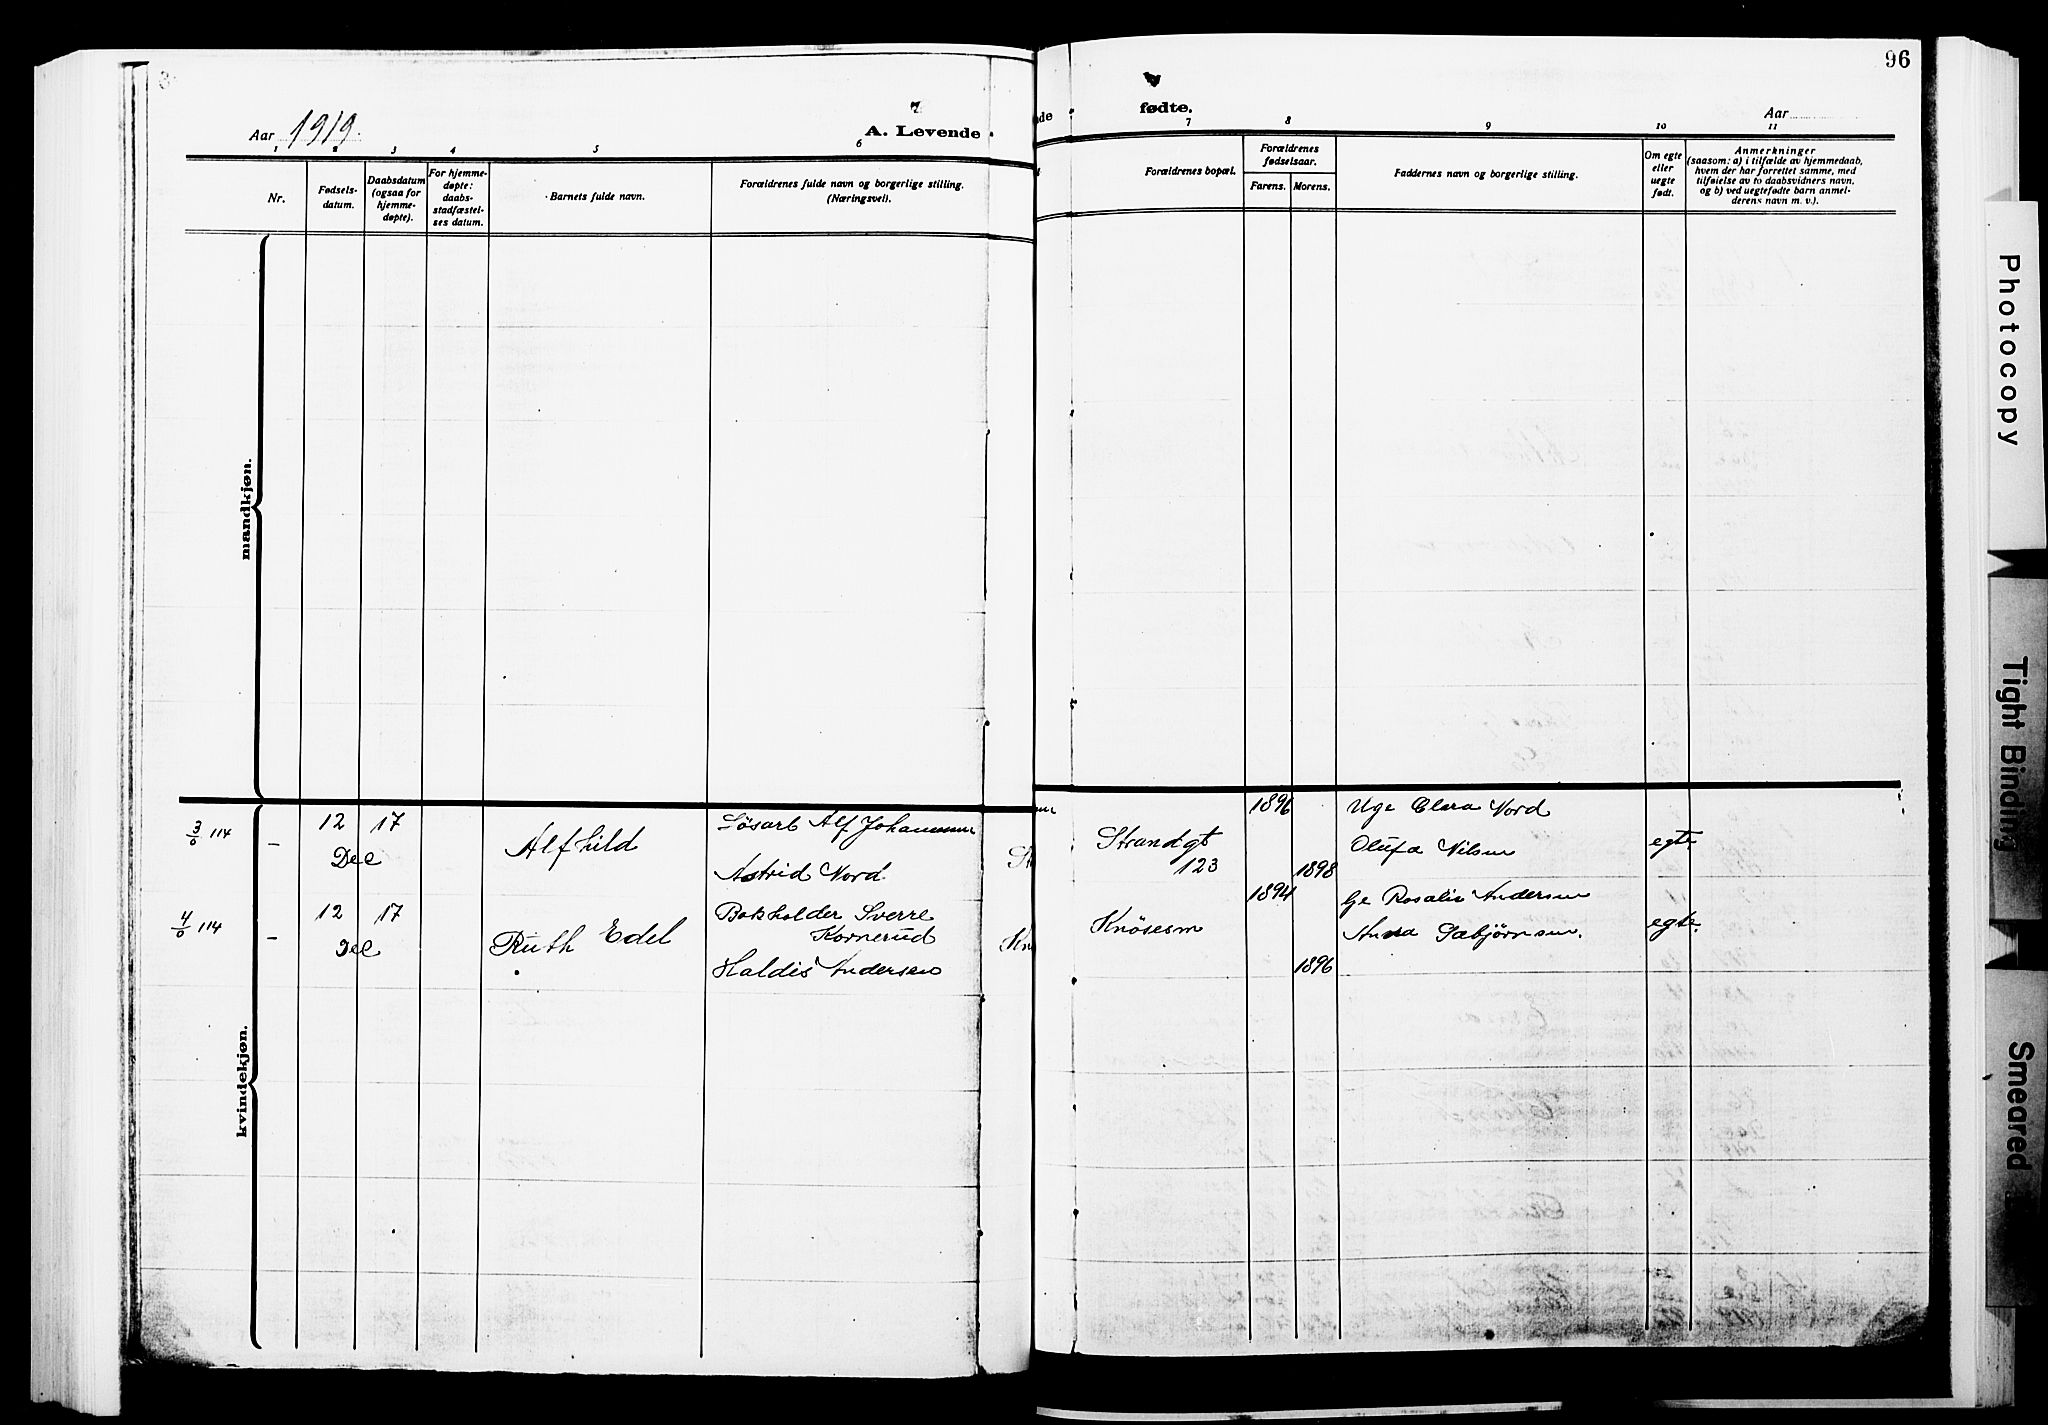 96
Aar 1919.
A. Levende
fødte.
Aar
1
2
3
4
5
6
7
8
9
10
11
Nr.
Fødsels-
datum.
Daabsdatum
(ogsaa for
hjemme-
døpte).
For hjemme-
døpte:
daabs-
stadfæstel-
ses datum.
Barnets fulde navn.
Forældrenes fulde navn og borgerlige stilling.
(Næringsvei).
Forældrenes bopæl.
Forældrenes
fødselsaar.
Farens.
Morens.
Faddernes navn og borgerlige stilling.
Om egte
eller
uegte
født.
Anmerkninger
(saasom: a) i tilfælde av hjemmedaab,
hvem der har forrettet samme, med
tilføielse av to daabsvidners navn,
og b) ved uegtefødte barn anmel-
derens navn m. v.).
mandkjøn.
kvindekjøn.
3/0 114
-
12
Dec
17
Alfhild
Løsarb Alf Johannesen
Astrid Nord
Strandgt
123
1896
1898
Uge Clara Nord
Olufa Nilsen
egte
4/0 114
-
12
Dec
17
Ruth Edel
Bokholder Sverre
Kornerud
Haldis Andersen
Knösesm
1894
1896
Ge Rosalie Andersen
Anna Sæbjørnsen.
egte
Photocopy
Tight Binding
Smeared